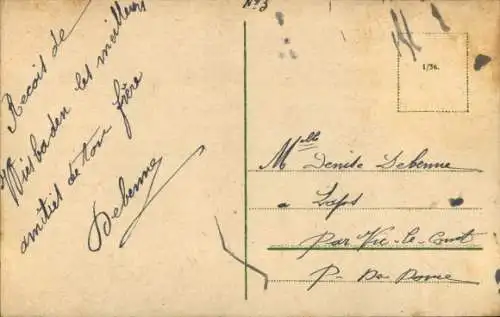 N° 3
Recois de
Wiesbaden les meilleurs
amitiés de ton frère
Debenne
1/56.
Melle Denise Debenne
a Laps
par Vic-le-Comte
P-De-Dome